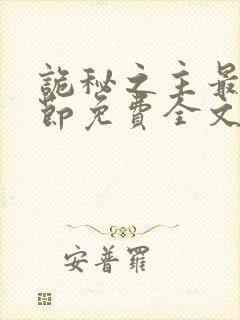 詭秘之主最
節免費全文
安普羅